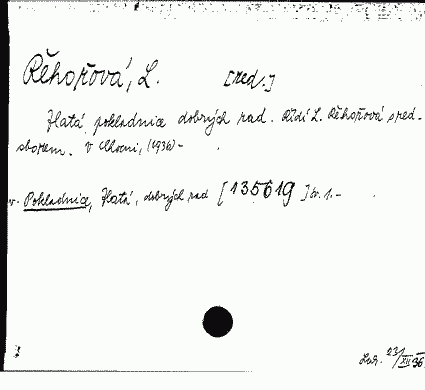 Řěhořová, L. [red.]
Zlatá pokladnice dobrých rad. Řídí L. Řěhořová s red.
sborem. V Mocni, (1936) -
v. Pokladnice, Zlatá, dobrých rad [135619] č. 1. -
23/XII 36